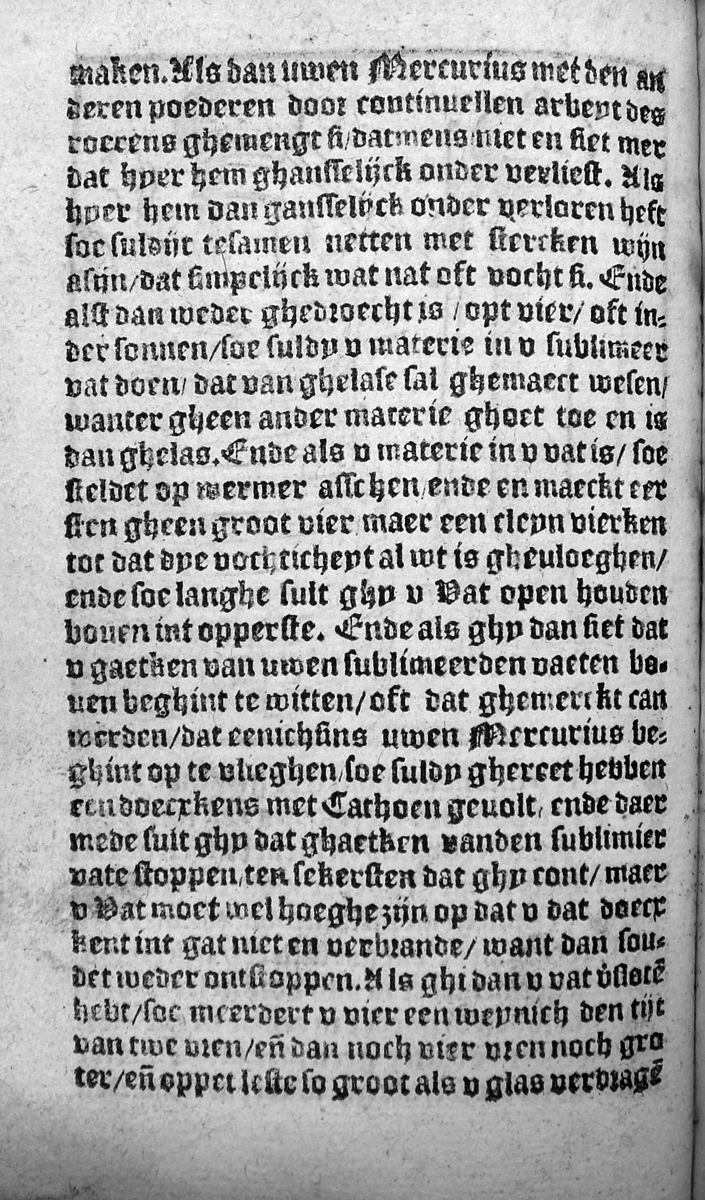 maken. Als dan uwen Mercurius met den an
deren poederen door continuellen arbeyt des
roerens ghemengt si/datmens niet en siet mer
dat hyer hem ghansselijck onder verliest. Als
hyer hem dan gansselijck onder verloren heft
soe suldijt tesamen netten met stercken wijn
asijn/dat simpelijck wat nat oft vocht si. Ende
alst dan weder ghedroecht is /opt vier/ oft in⸗
der sonnen/soe suldy v materie in v sublimeer
vat doen/ dat van ghelase sal ghemaect wesen/
wanter gheen ander materie ghoet toe en is
dan ghelas. Ende als v materie in v vat is/ soe
steldet op wermer asschen/ende en maeckt eer
sten gheen groot vier maer een cleyn vierken
tot dat dye vochticheyt al wt is ghevloeghen/
ende soe langhe sult ghy v Vat open houden
bouen int opperste. Ende als ghy dan siet dat
v gaetken van uwen sublimeerden vaeten bo⸗
uen beghint te witten/oft dat ghemerckt can
werden/dat eenichsins uwen Mercurius be⸗
ghint op te vlieghen/soe suldy ghereet hebben
een doecxkens met Cathoen geuolt/ ende daer
mede sult ghy dat ghaetken vanden sublimier
vate stoppen/ten sekersten dat ghy cont/ maer
v Vat moet wel hoeghe zijn op dat v dat doecx
kent int gat niet en verbrande/ want dan sou⸗
det weder ontstoppen. Als ghi dan v vat v̓stotē
hebt/soe meerdert v vier een weynich den tijt
van twe vren/eñ dan noch vier vren noch gro
ter/eñ oppet leste so groot als v glas verdragē